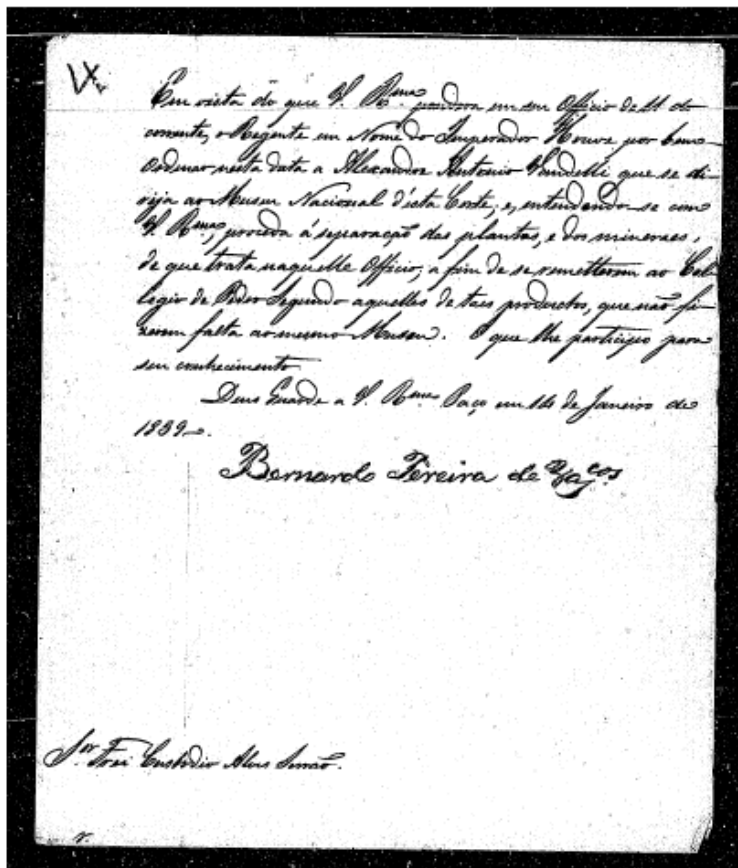 Em vista do que V. Rma pondera em seu Officio de 11 do
corrente, o Regente em Nome do Imperador Houve por bem
Ordenar nesta data a Alexandre Antonio Vandelli que se di-
rija ao Museu Nacional d'esta Corte, e, entendendo-se com
V. Rma, proceda á separação das plantas, e dos mineraes,
de que trata naquelle Officio, a fim de se remetterem ao Col-
legio de Pedro Segundo aquelles de taes productos, que não fi-
zerem falta ao mesmo Museu. O que lhe participo para
seu conhecimento.
Deus Guarde a V. Rma Paço em 14 de Janeiro de
1839.
Bernardo Pereira de Vascos
Sor Frei Custodio Alves Serrão.